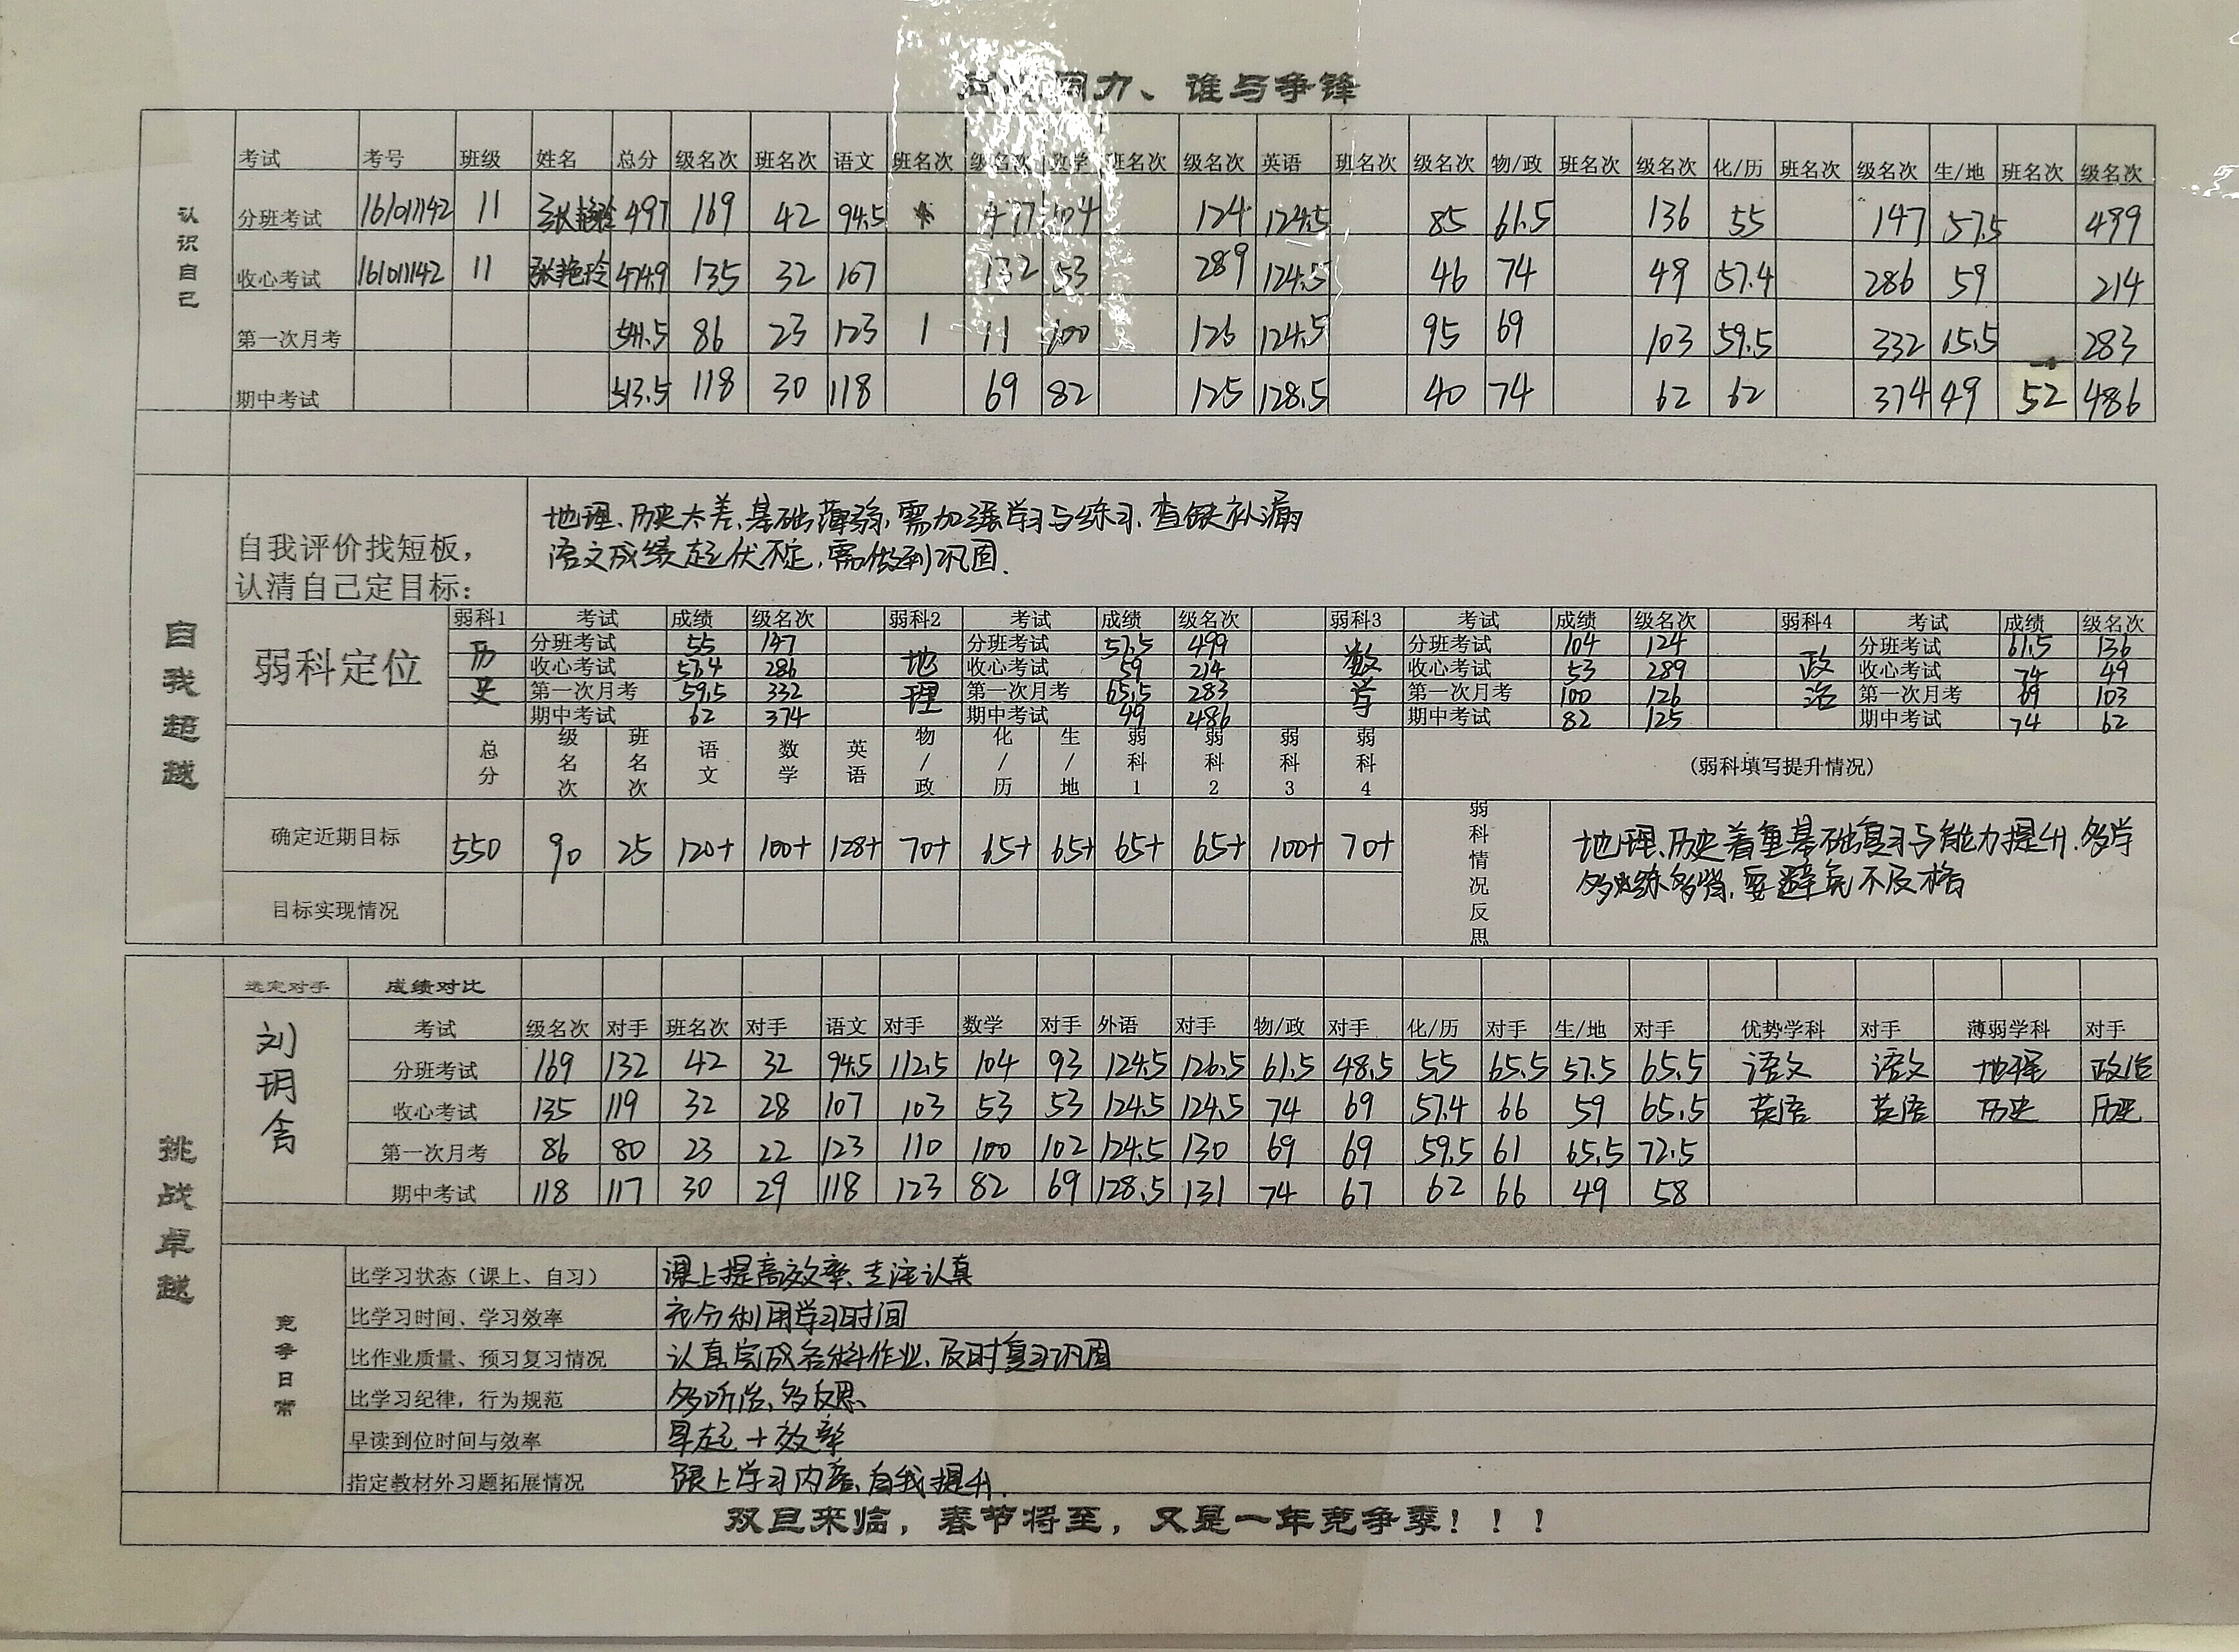 同力、谁与争锋
认识自己
考试 考号 班级 姓名 总分 级名次 班名次 语文 班名次 级名次 数学 班名次 级名次 英语 班名次 级名次 物/政 班名次 级名次 化/历 班名次 级名次 生/地 班名次 级名次
分班考试 161011142 11 497 169 42 94.5 477 104 124 124.5 85 61.5 136 55 147 57.5 499
收心考试 161011142 11 张艳玲 474.9 135 32 107 132 53 289 124.5 46 74 49 57.4 286 59 214
第一次月考 541.5 86 23 123 1 11 100 126 124.5 95 69 103 59.5 332 65.5 283
期中考试 513.5 118 30 118 69 82 125 128.5 40 74 62 62 374 49 52 486
自我超越
自我评价找短板，
认清自己定目标：
地理、历史太差，基础薄弱，需加强学习与练习，查缺补漏
语文成绩起伏不定，需做到巩固.
弱科定位
弱科1 考试 成绩 级名次 弱科2 考试 成绩 级名次 弱科3 考试 成绩 级名次 弱科4 考试 成绩 级名次
历史 地理 数学 政治
分班考试 55 147 分班考试 57.5 499 分班考试 104 124 分班考试 61.5 136
收心考试 57.4 286 收心考试 59 214 收心考试 53 289 收心考试 74 49
第一次月考 59.5 332 第一次月考 65.5 283 第一次月考 100 126 第一次月考 69 103
期中考试 62 374 期中考试 49 486 期中考试 82 125 期中考试 74 62
总分 级名次 班名次 语文 数学 英语 物/政 化/历 生/地 弱科1 弱科2 弱科3 弱科4 (弱科填写提升情况)
确定近期目标 550 90 25 120+ 100+ 128+ 70+ 65+ 65+ 65+ 65+ 100+ 70+
目标实现情况
弱科情况反思
地理、历史着重基础复习与能力提升，多学
多练多背，要避免不及格
挑战卓越
选定对手 成绩对比
刘玥含
考试 级名次 对手 班名次 对手 语文 对手 数学 对手 外语 对手 物/政 对手 化/历 对手 生/地 对手 优势学科 对手 薄弱学科 对手
分班考试 169 132 42 32 94.5 112.5 104 93 124.5 126.5 61.5 48.5 55 65.5 57.5 65.5 语文 语文 地理 政治
收心考试 135 119 32 28 107 103 53 53 124.5 124.5 74 69 57.4 66 59 65.5 英语 英语 历史 历史
第一次月考 86 80 23 22 123 110 100 102 124.5 130 69 69 59.5 61 65.5 72.5
期中考试 118 117 30 29 118 123 82 69 128.5 131 74 67 62 66 49 58
竞争日常
比学习状态（课上、自习） 课上提高效率、专注认真
比学习时间、学习效率 充分利用学习时间
比作业质量、预习复习情况 认真完成各科作业、及时复习巩固
比学习纪律，行为规范 多听话，多反思
早读到位时间与效率 早起+效率
指定教材外习题拓展情况 跟上学习内容，自我提升.
双旦来临，春节将至，又是一年竞争季！！！